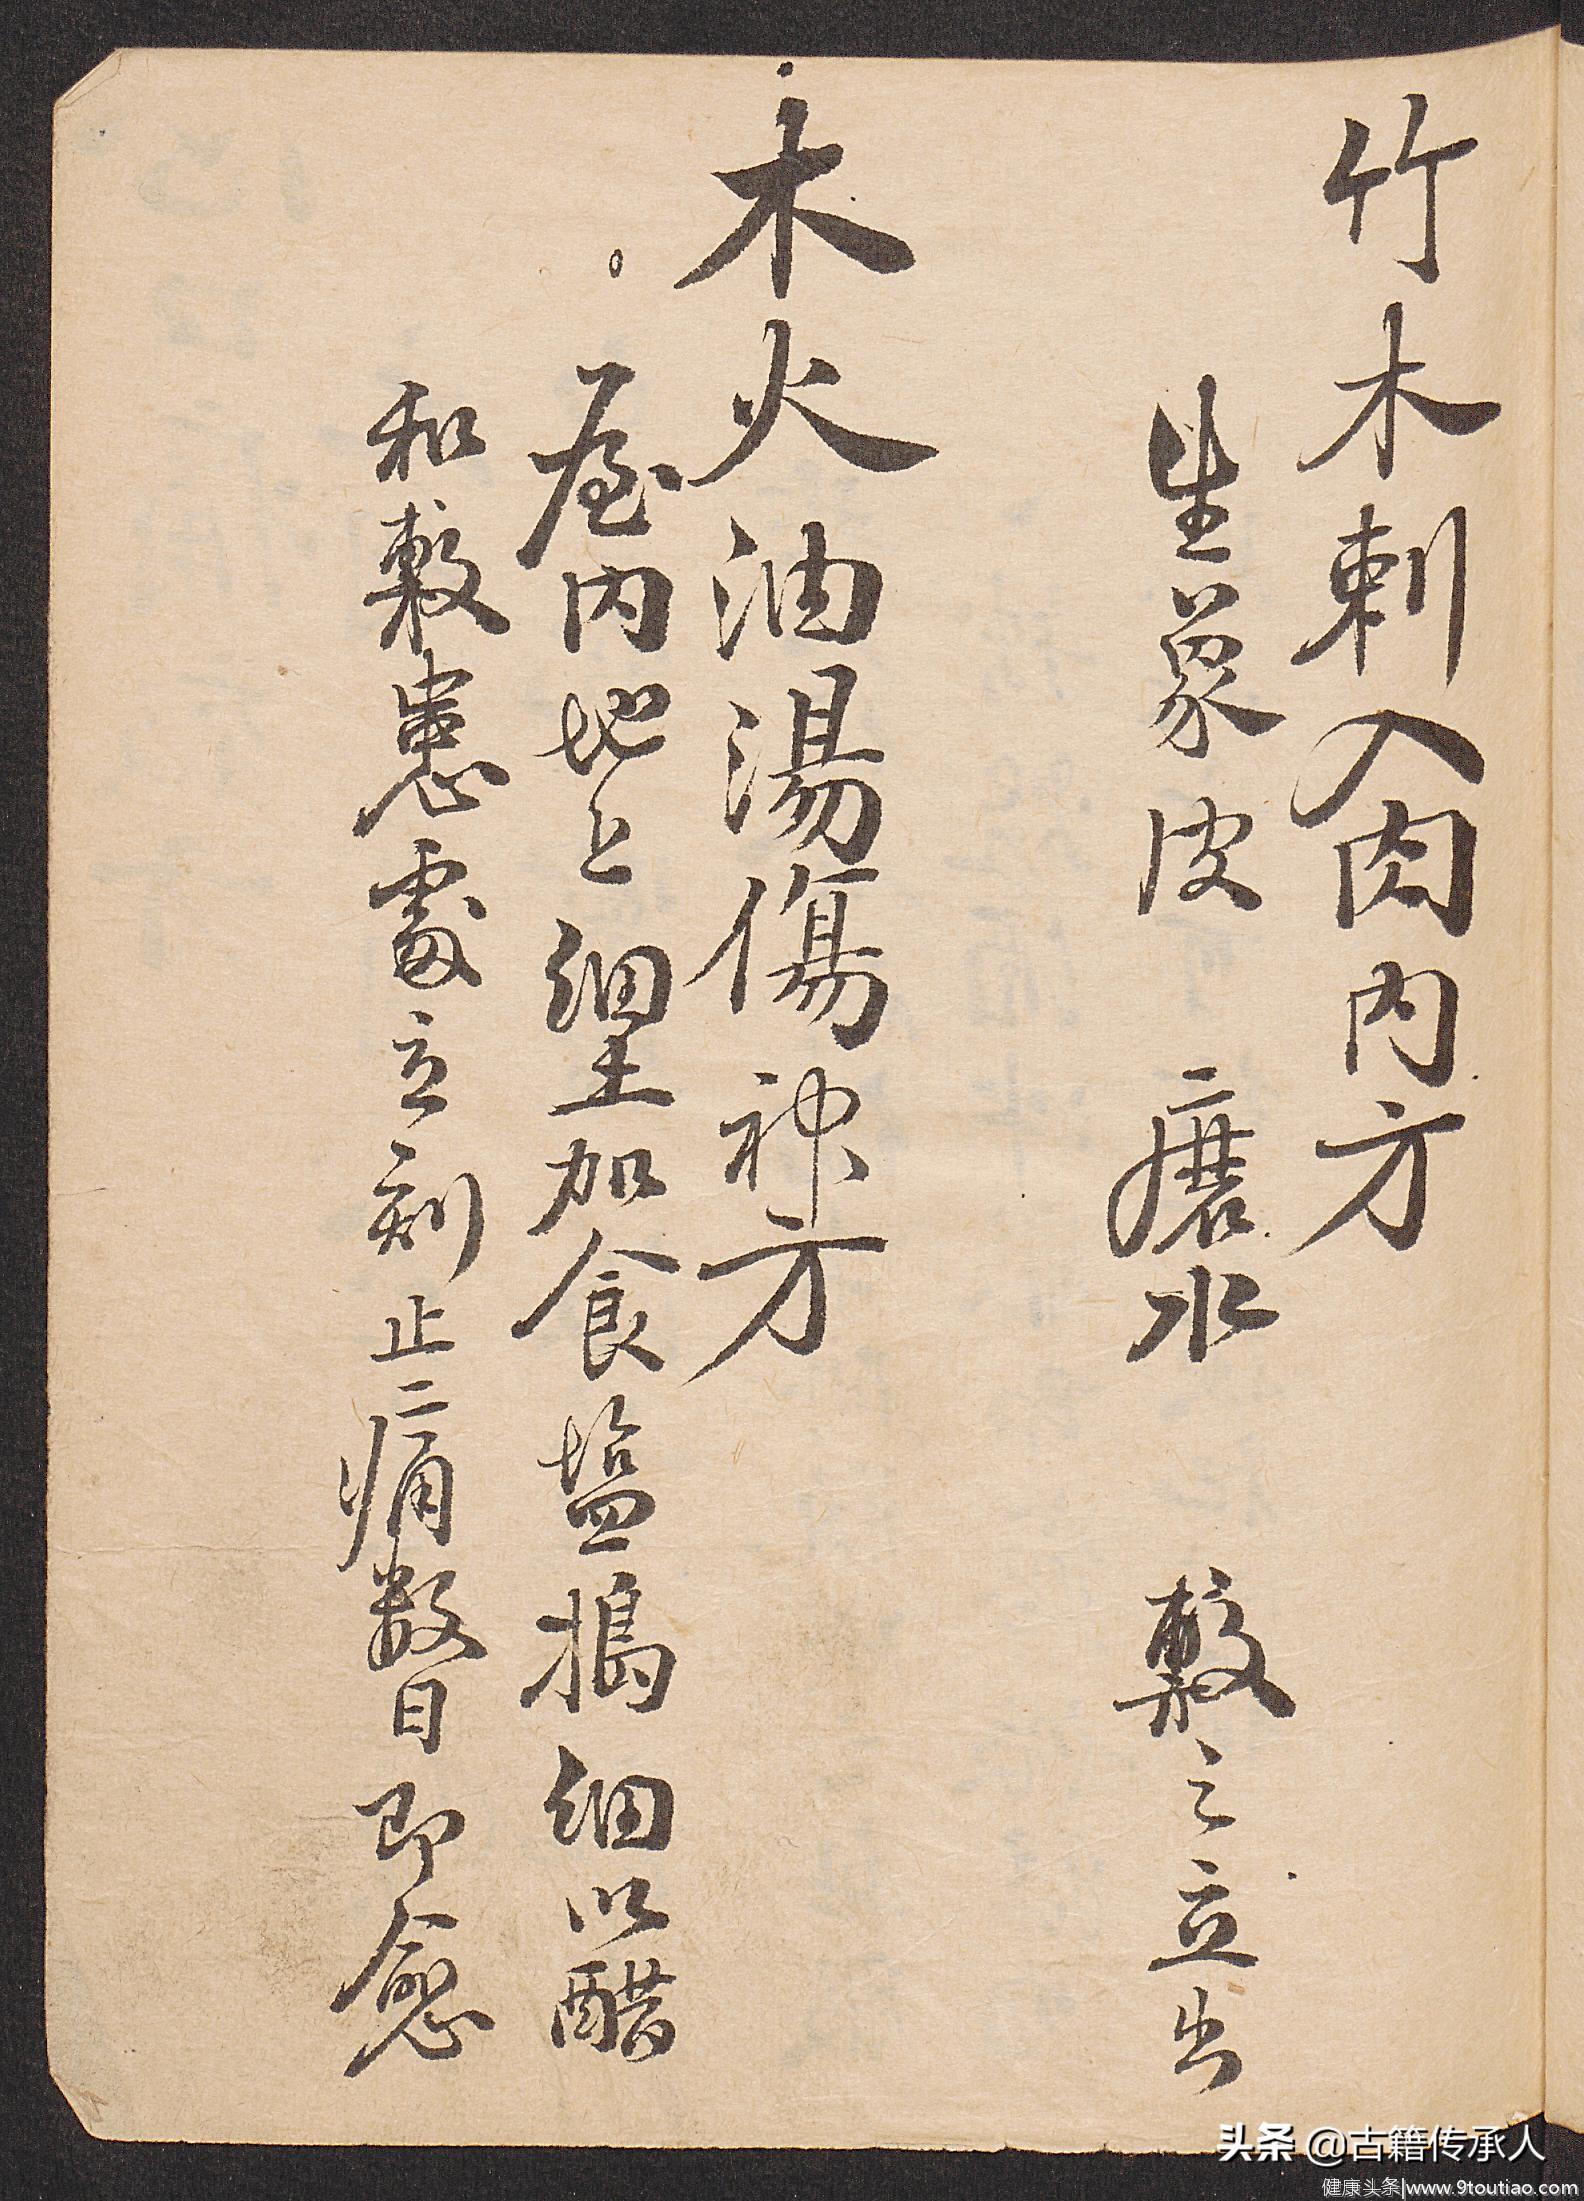 竹木刺入肉内方
生象皮　磨水　敷之立出
木火油湯傷神方
屋内地上細土加食塩搗細以醋
和敷患處立刻止痛数日即愈
头条 @古籍传承人
健康头条|www.9toutiao.com